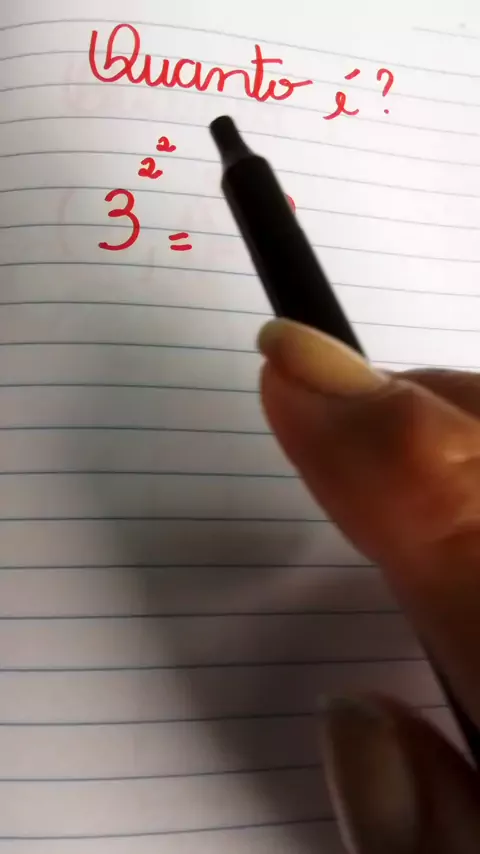 Quanto é?
3^2^2 =